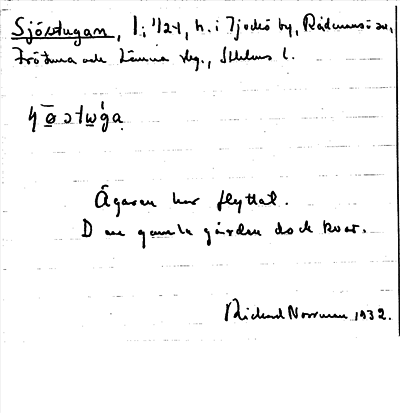 Sjöstugan, 1; 1/24, h. i Tjockö by, Rådmansö sn,
Frötuna och Länna skg., Sthlms l.
Ägaren har flyttat.
Den gamla gården dock kvar.
Richard Norrman 1932.